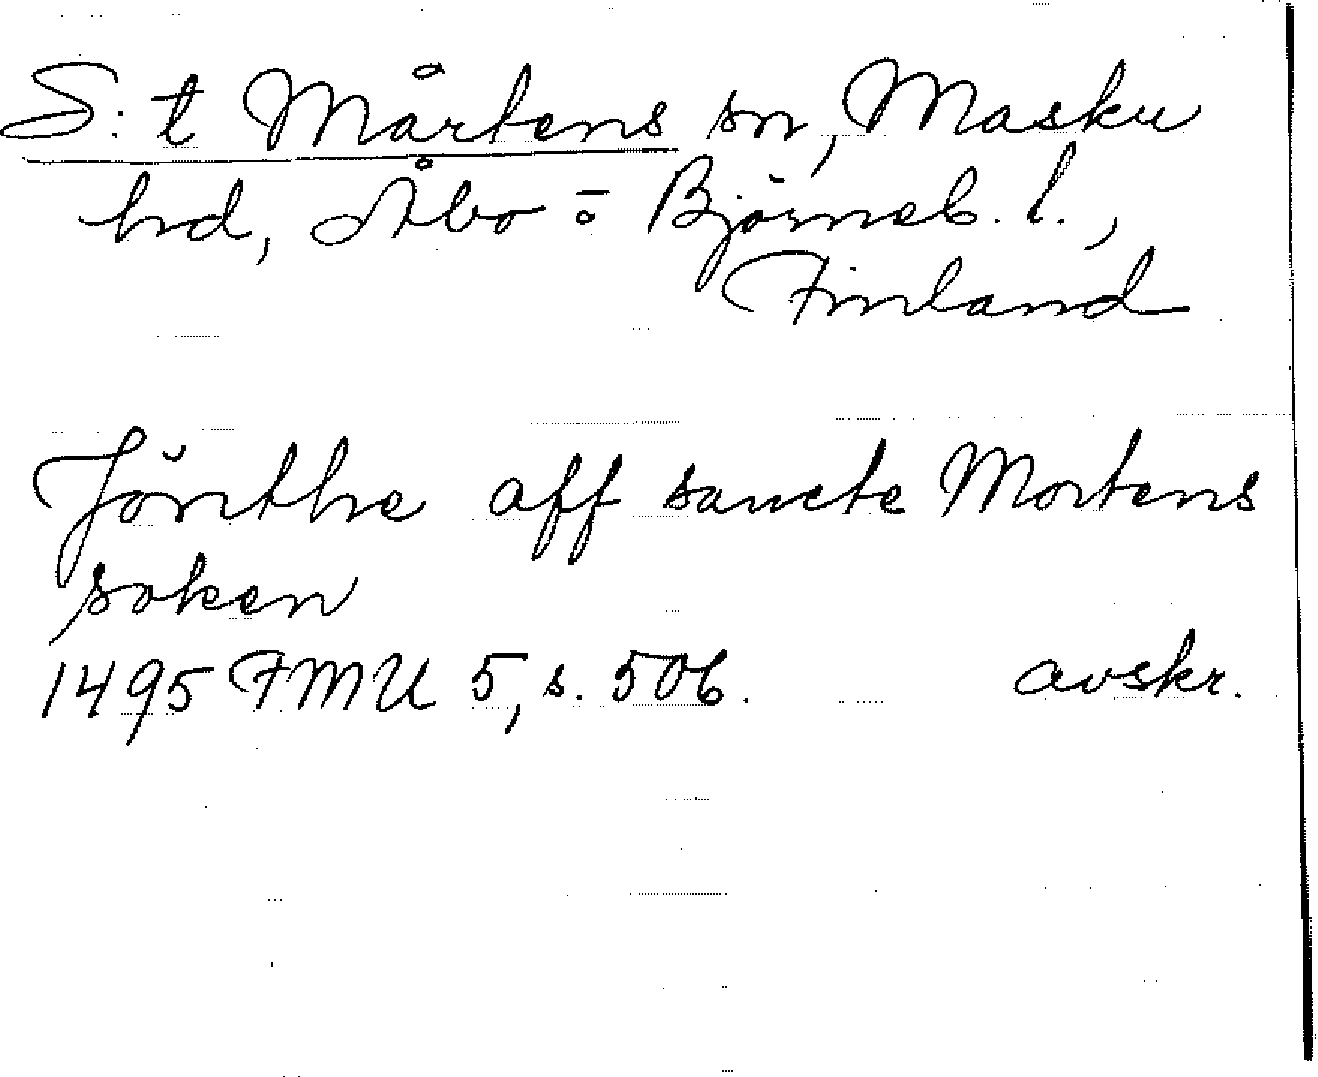 S:t Mårtens sn, Masku
hd, Åbo- o Björneb. l.,
Finland
Jönthe aff sancte Mortens
soken
1495 FMU 5, s. 506. avskr.